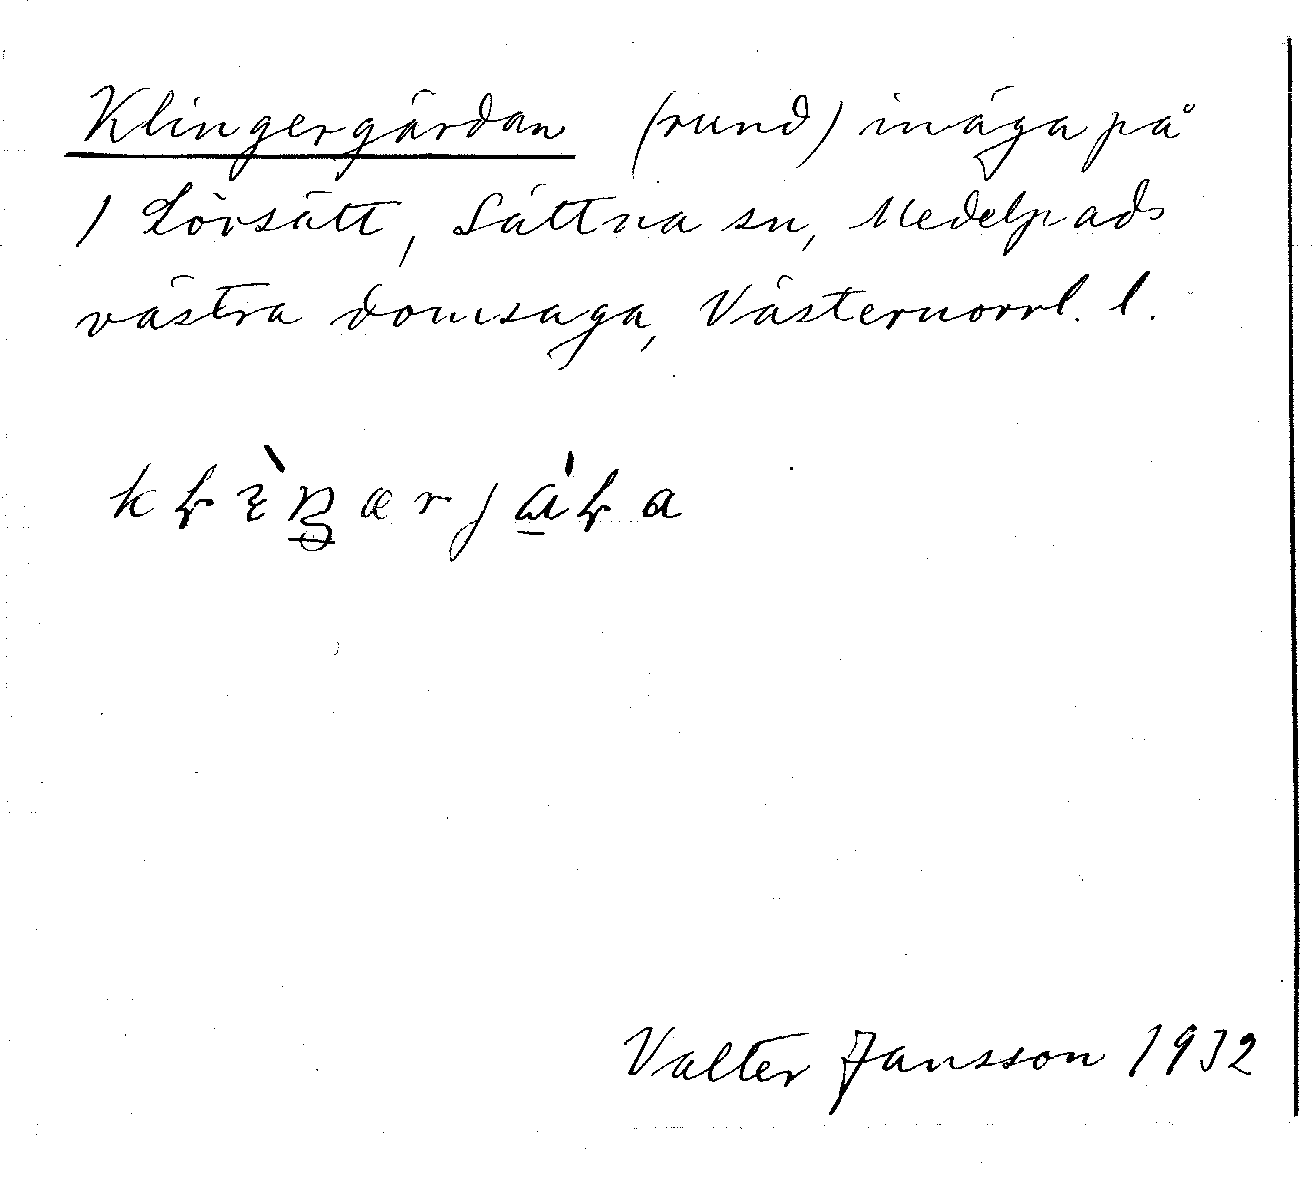 Klingergärdan (rund) inäga på
1 Lövsätt, Sättna sn, Medelpads
västra domsaga, Västernorrl. l.
Valter Jansson 1932